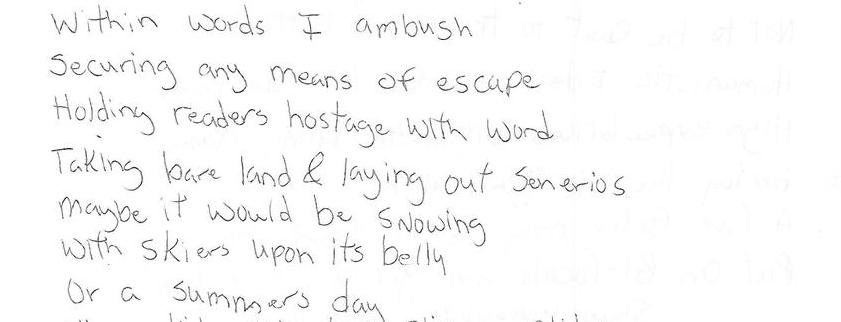 Within words I ambush
Securing any means of escape
Holding readers hostage with word
Taking bare land & laying out Senerios
maybe it would be snowing
with skiers upon its belly
Or a summers day